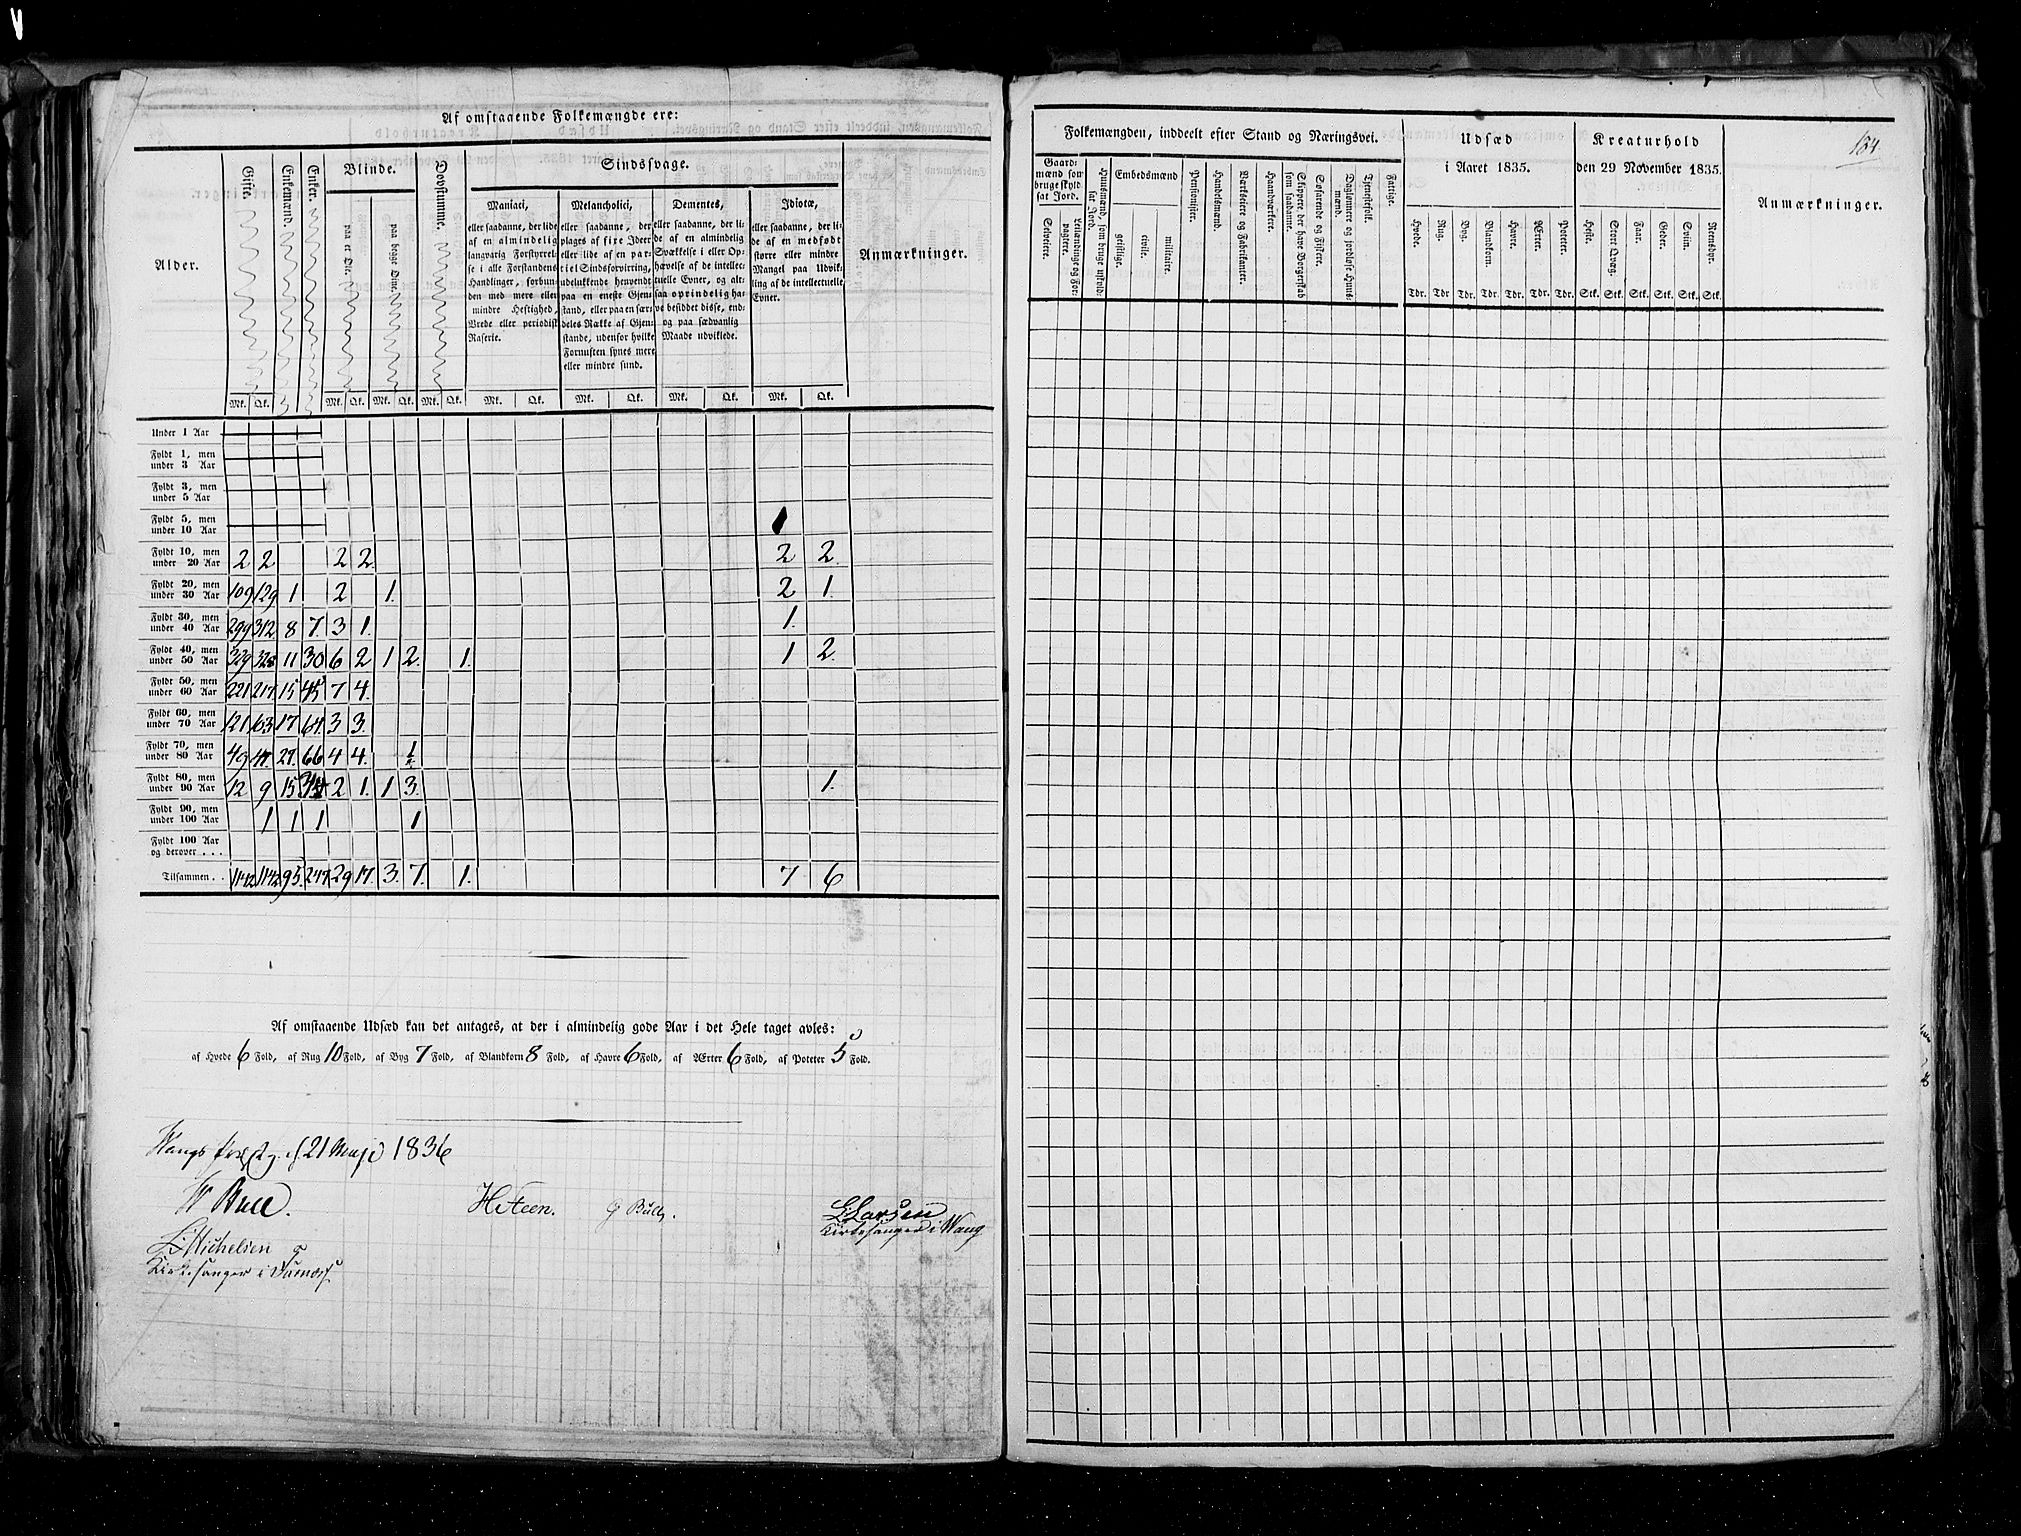 Af omstaaende Folkemængde ere:
Alder.
Gifte.
Enkemænd.
Enker.
Blinde.
paa et Øie.
paa begge Øine.
Døvstumme.
Sindssvage.
Maniaci,
eller saadanne, der lide
af en almindelig
langvarig Forstyrrel-
se i alle Forstandens
Handlinger, forbun-
den med mere eller
mindre Heftighed,
Vrede eller periodisk
Raserie.
Melancholici,
eller saadanne, der
plages af fixe Ideer
eller lide af en par-
tiel Sindsforvirring,
udelukkende henvendt
paa en eneste Gjen-
stand, eller paa en sær-
deles Række af Gjen-
stande, udenfor hvilke
Fornuften synes mere
eller mindre sund.
Dementes,
eller saadanne, der li-
de af en almindelig
Svækkelse i eller Op-
hævelse af de intellec-
tuelle Evner, og alt-
saa oprindelig ha-
ve besiddet disse, end-
og paa sædvanlig
Maade udviklede.
Idiotæ,
eller saadanne, der li-
de af en medfødt
større eller mindre
Mangel paa Udvik-
ling af de intellectuelle
Evner.
Anmærkninger.
Mk. Qk. Mk. Qk. Mk. Qk. Mk. Qk. Mk. Qk. Mk. Qk. Mk. Qk. Mk. Qk.
Under 1 Aar
Fyldt 1, men
under 3 Aar
Fyldt 3, men
under 5 Aar
Fyldt 5, men
under 10 Aar 1
Fyldt 10, men
under 20 Aar 2 2 2 2 2 2
Fyldt 20, men
under 30 Aar 109 129 1 2 1. 2 1.
Fyldt 30, men
under 40 Aar 299 312 8 7. 3 1. 1.
Fyldt 40, men
under 50 Aar 329 328 11 30 6 2 1 2. 1. 1 2.
Fyldt 50, men
under 60 Aar 221 217 15 45 7 4.
Fyldt 60, men
under 70 Aar 121 63 17 64. 3 3.
Fyldt 70, men
under 80 Aar 49 27. 66 4 4. 1
Fyldt 80, men
under 90 Aar 12 9 15 2 1. 1 3. 1.
Fyldt 90, men
under 100 Aar 1 1 1 1
Fyldt 100 Aar
og derover . . .
Tilsammen . . 1142 1142 95. 247. 29 17. 3. 7. 1. 7 6
Af omstaaende Udsæd kan det antages, at der i almindelig gode Aar i det Hele taget avles:
af Hvede 6 Fold, af Rug 10 Fold, af Byg 7 Fold, af Blandkorn 8 Fold, af Havre 6 Fold, af Ærter 6 Fold, af Poteter 5 Fold.
21 1836
Bull.
H. Steen. G Bull.
L Larsen
Kirkesanger i Wang
L Michelsen
Kirkesanger i
164
Folkemængden, inddeelt efter Stand og Næringsvei.
Gaard-
mænd som
bruge skyld-
sat Jord.
Selveiere.
Leilændinge og For-
pagtere.
Huusmænd, som bruge uskyld-
sat Jord.
Embedsmænd
geistlige.
civile.
militaire.
Pensionister.
Handelsmænd.
Værkeiere og Fabrikanter.
Haandværkere.
Skippere, der have Borgerskab
som saadanne.
Søfarende og Fiskere.
Daglønnere og jordløse Huus-
mænd.
Tjenestefolk.
Fattige.
Udsæd
i Aaret 1835.
Hvede.
Rug.
Byg.
Blandkorn.
Havre.
Ærter.
Poteter.
Tdr. Tdr. Tdr. Tdr. Tdr. Tdr. Tdr.
Kreaturhold
den 29 November 1835.
Heste.
Stort Qvæg.
Faar.
Geder.
Sviin.
Reensdyr.
Stk. Stk. Stk. Stk. Stk. Stk.
Anmærkninger.